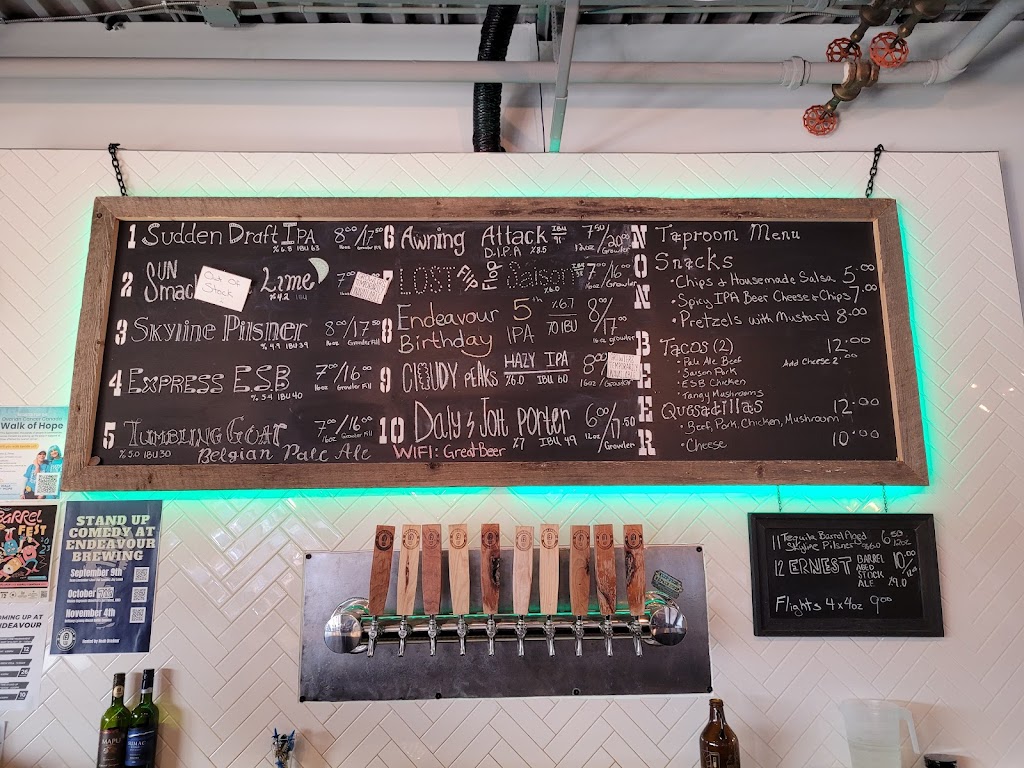 1 Sudden Draft IPA 8.00/17.50
% 6.8 IBU 63 16oz Growler Fill
2 SUN Smack Lime 7.00
Out Of Stock
% 4.2 IBU
3 Skyline Pilsner 8.00/17.50
% 4.9 IBU 39 16oz Growler Fill
4 Express E.S.B 7.00/16.00
% 5.4 IBU 40 16oz Growler Fill
5 Tumbling Goat 7.00/16.00
% 5.0 IBU 30 Belgian Pale Ale 16oz Growler Fill
6 Awning Attack IBU 91 7.50/20.00
D.I.P.A %8.5 12oz/Growler
7 LOST Flip Flop Saison 7.00/16.00
%6.0 16oz/Growler
8 Endeavour 5th %6.7 8.00/17.00
Birthday IPA 70 IBU 16oz growler
9 CLOUDY PEAKS HAZY IPA 8.00
%6.0 IBU 60 16oz/Growler
10 Daly & Jolt Porter 6.00/17.50
%7 IBU 49 12oz/Growler
WIFI: GreatBeer
NON BEER
Taproom Menu
Snacks
• Chips & Housemade Salsa 5.00
• Spicy IPA Beer Cheese & Chips 7.00
• Pretzels with Mustard 8.00
Tacos (2) 12.00
• Pale Ale Beef Add Cheese 2.00
• Saison Pork
• ESB Chicken
• Tangy Mushrooms
Quesadillas 12.00
• Beef, Pork, Chicken, Mushroom
• Cheese 10.00
11 Tequila Barrel Aged 6.50
Skyline Pilsner %6.0 12oz
12 ERNEST BARREL AGED STOCK ALE 10.00
%9.0
Flights 4x4oz 9.00
Walk of Hope
BARREL
FEST
STAND UP
COMEDY AT
ENDEAVOUR
BREWING
September 9th
October
November 4th
COMING UP AT
ENDEAVOUR
MAPU